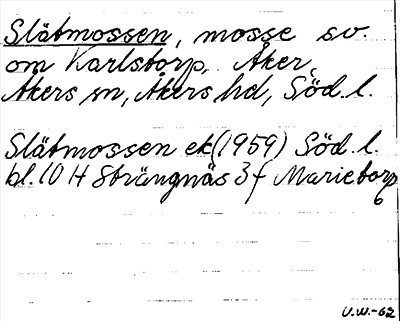 Slätmossen, mosse sv.
om Karlstorp, Åker,
Åkers sn, Åkers hd, Söd. l.
Slätmossen ek (1959) Söd. l.
bl. 10 H Strängnäs 3 f Marietorp
6
U.W.-62